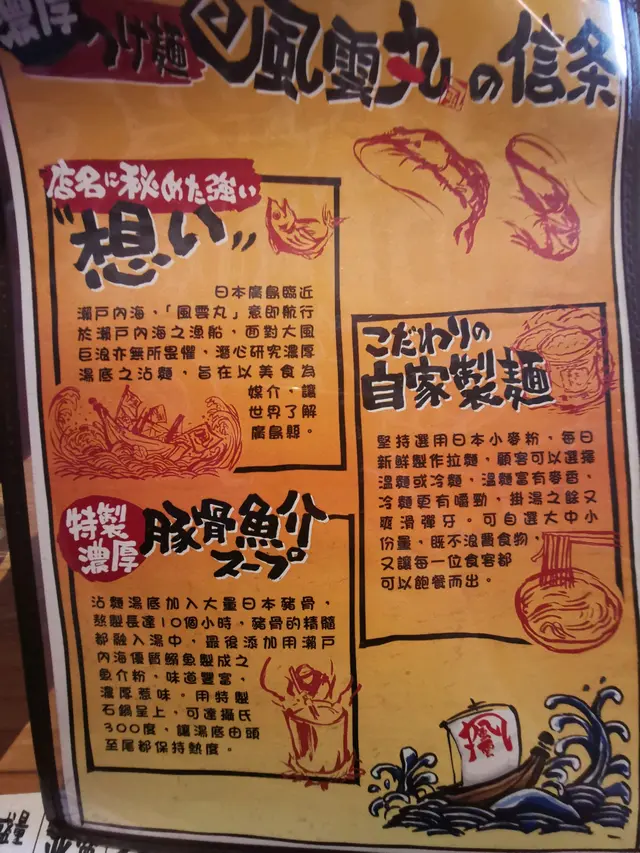 濃厚
つけ麺
風雲丸の信条
店名に秘めた強い
"想い"
日本廣島臨近
瀨戶內海，「風雲丸」意即航行
於瀨戶內海之漁船，面對大風
巨浪亦無所畏懼，潛心研究濃厚
湯底之沾麵，旨在以美食為
媒介，讓
世界了解
廣島縣。
こだわりの
自家製麺
堅持選用日本小麥粉，每日
新鮮製作拉麵，顧客可以選擇
溫麵或冷麵，溫麵富有麥香，
冷麵更有嚼勁，掛湯之餘又
爽滑彈牙。可自選大中小
份量，既不浪費食物，
又讓每一位食客都
可以飽餐而出。
特製
濃厚
豚骨魚介
スープ
沾麵湯底加入大量日本豬骨，
熬製長達10個小時，豬骨的精髓
都融入湯中，最後添加用瀨戶
內海優質鯷魚製成之
魚介粉，味道豐富，
濃厚惹味。用特製
石鍋呈上，可達攝氏
300度，讓湯底由頭
至尾都保持熱度。
風雲丸